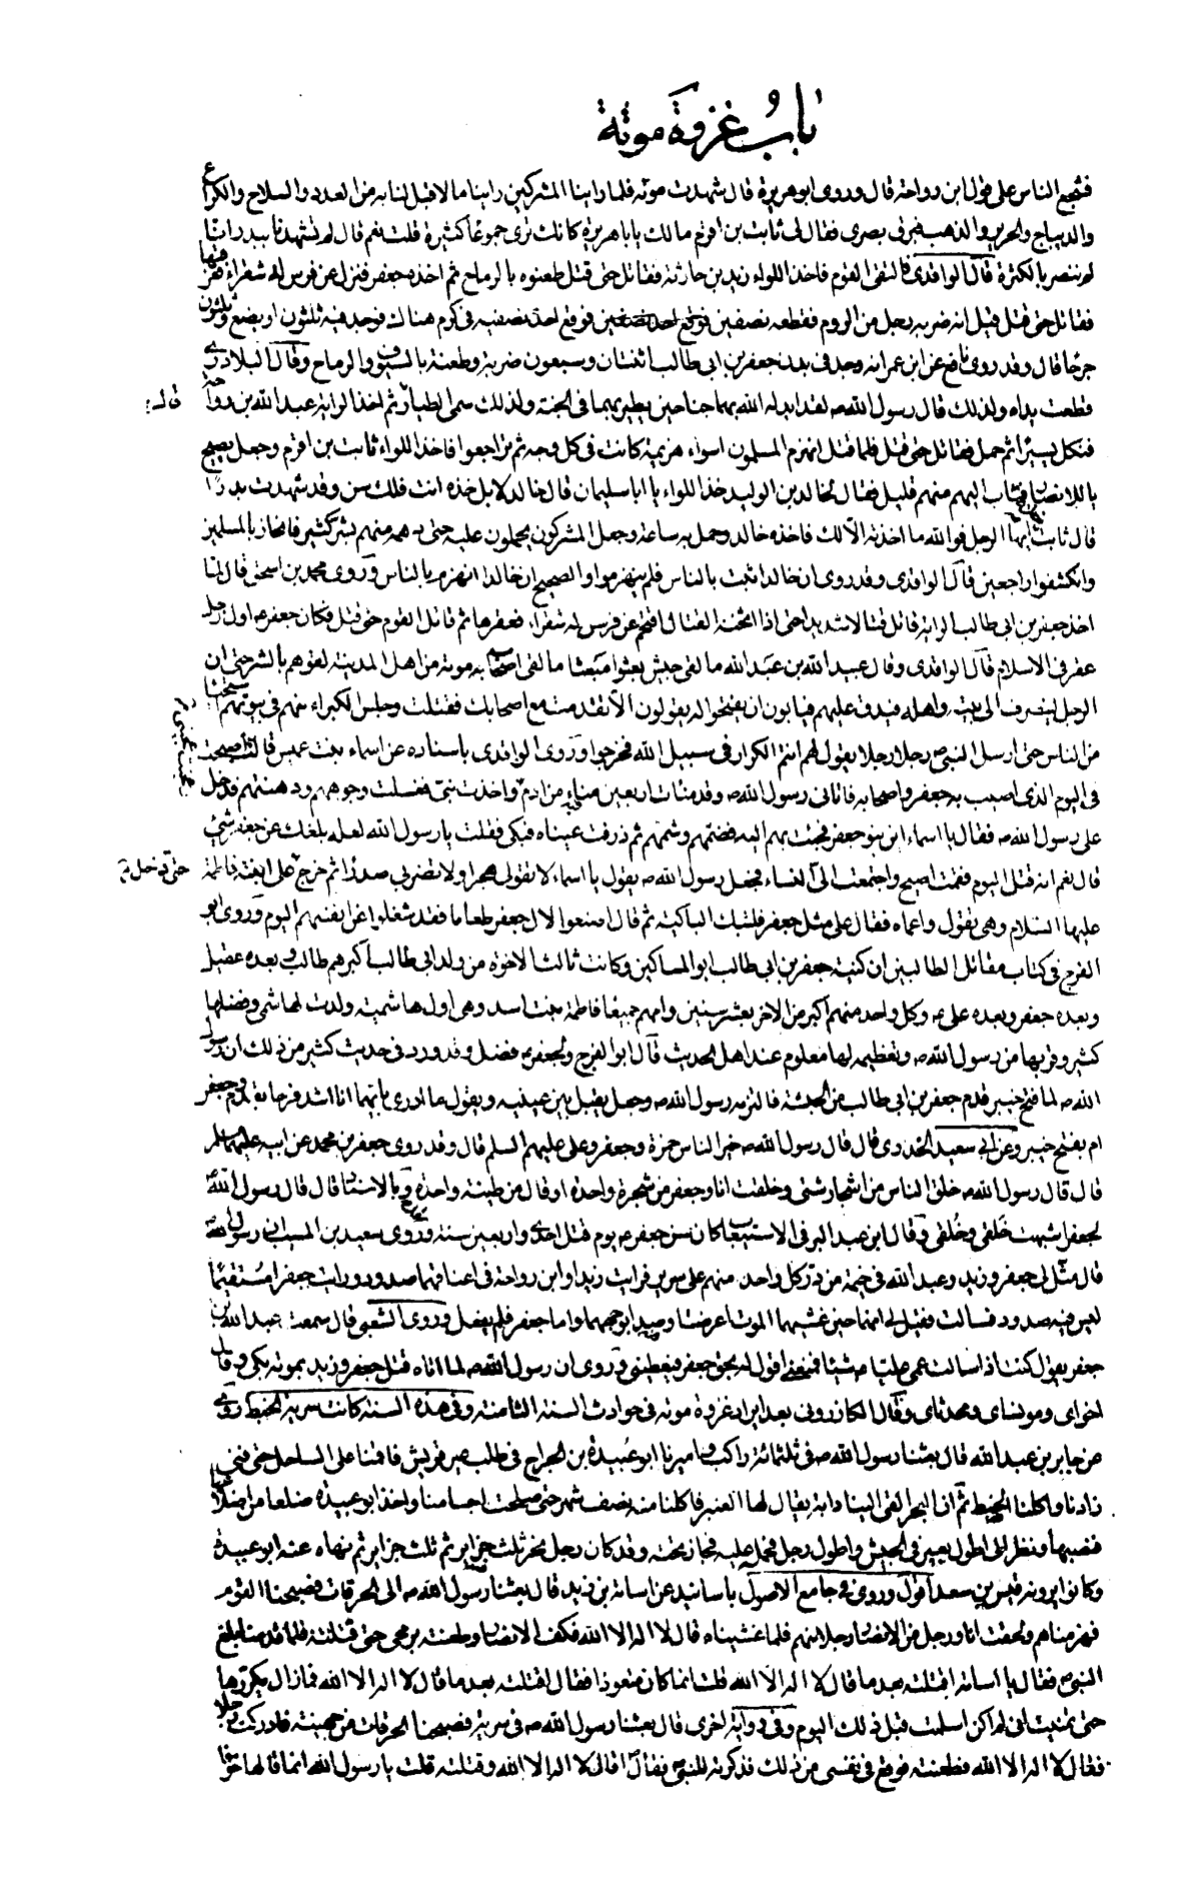 باب غزوة موتة
فشجع الناس على قول ابن رواحة قال وروى ابو هريرة قال شهدت موته فلما راينا المشركين راينا ما لا قبل لنا به من العدد والسلاح والكراع
والديباج والحرير والذهب فبرق بصرى فقال لى ثابت بن اقرم مالك يا با هريرة كانك ترى جموعا كثيرة قلت نعم قال لم تشهدنا ببدر انا
لم ننصر بالكثرة قال الواقدى فالتقى القوم فاخذ اللواء زيد بن حارثة فقاتل حتى قتل طعنوه بالرماح ثم اخذه جعفر فنزل عن فرس له شقراء فعرقبها
فقاتل حتى قتل قيل انه ضربه رجل من الروم فقطعه نصفين فوقع احد نصفيه فى كرم هناك فوجد فيه ثلثون او بضع وثلثون
جرحا قال وقد روى نافع عن ابن عمر انه وجد فى بدن جعفر بن ابى طالب اثنتان وسبعون ضربة وطعنة بالسيوف والرماح وقال البلاذرى
قطعت يداه ولذلك قال رسول الله ص لقد ابدله الله بهما جناحين يطير بهما فى الجنة ولذلك سمى الطيار ثم اخذ الراية عبد الله بن رواحة قال
فنكل يسيرا ثم حمل فقاتل حتى قتل فلما قتل انهزم المسلمون اسواء هزيمة كانت فى كل وجه ثم تراجعوا فاخذ اللواء ثابت بن اقرم وجعل يصيح
يا للانصار فثاب اليه منهم قليل فقال لخالد بن الوليد خذ اللواء يا ابا سليمان قال خالد لا بل خذه انت فلك سن وقد شهدت بدرا
قال ثابت خذه ايها الرجل فوالله ما اخذته الا لك فاخذه خالد وحمل به ساعة وجعل المشركون يحملون عليه حتى دهمه منهم بشر كثير فانحاز بالمسلمين
وانكشفوا راجعين قال الواقدى وقد روى ان خالدا ثبت بالناس فلم ينهزموا والصحيح ان خالدا انهزم بالناس وروى محمد بن اسحق قال لما
اخذ جعفر بن ابى طالب الراية قاتل قتالا شديدا حتى اذا الحمه القتال اقتحم عن فرس له شقراء فعقرها ثم قاتل القوم حتى قتل فكان جعفر ع اول رجل
عقر فى الاسلام قال الواقدى وقال عبيد الله بن عبد الله ما لقى جيش بعثوا مبعثا ما لقى اصحاب موتة من اهل المدينة لقوهم بالشر حتى ان
الرجل لينصرف الى بيته واهله فيدق عليهم فيابون ان يفتحوا له يقولون الا تقدمت مع اصحابك فقتلت وجلس الكبراء منهم فى بيوتهم استحياء
من الناس حتى ارسل النبى ص رجلا رجلا يقول لهم انتم الكرار فى سبيل الله فخرجوا وروى الواقدى باسناده عن اسماء بنت عميس قالت اصبحت
فى اليوم الذى اصيب به جعفر واصحابه فاتانى رسول الله ص وقد منأت اربعين منا من ادم واخذت بنى فغسلت وجوههم ودهنتهم فدخل
على رسول الله ص فقال يا اسماء اين بنو جعفر فجئت بهم اليه فضمهم وشمهم ثم ذرفت عيناه فبكى فقلت يا رسول الله لعله بلغك عن جعفر شئ
قال نعم انه قتل اليوم فقمت اصيح واجتمعت الى النساء فجعل رسول الله ص يقول يا اسماء لا تقولى هجرا ولا تضربى صدرا ثم خرج حتى دخل على ابنته فاطمة
عليها السلام وهى تقول واعماه فقال على مثل جعفر فلتبك الباكية ثم قال اصنعوا لال جعفر طعاما فقد شغلوا عن انفسهم اليوم وروى ابو
الفرج فى كتاب مقاتل الطالبين ان كنية جعفر بن ابى طالب ابو المساكين وكانت ثالث الاخوة من ولد ابى طالب اكبرهم طالب وبعده عقيل
وبعده جعفر وبعده على ع وكل واحد منهم اكبر من الاخر بعشر سنين وامهم جميعا فاطمة بنت اسد وهى اول هاشمية ولدت لهاشمى وفضلها
كثير وقربها من رسول الله ص وتعظيمه لها معلوم عند اهل الحديث قال ابو الفرج ولجعفر ع فضل وقد ورد فى حديث كثير من ذلك ان رسول
الله ص لما فتح خيبر قدم جعفر بن ابى طالب من الحبشة فالتزمه رسول الله ص وجعل يقبل بين عينيه ويقول ما ادرى بايهما انا اشد فرحا بقدوم جعفر
ام بفتح خيبر وعن ابى سعيد الخدرى قال قال رسول الله ص خير الناس حمزة وجعفر وعلى عليهم السلم قال وقد روى جعفر بن محمد عن ابيه عليهما السلم
قال قال رسول الله ص خلق الناس من اشجار شتى وخلقت انا وجعفر من شجرة واحدة او قال من طينة واحدة وبالاسناد قال قال رسول الله ص
لجعفر اشبهت خلقى وخلقى وقال ابن عبد البر فى الاستيعاب كان سن جعفر ع يوم قتل احدى واربعين سنة وروى سعيد بن المسيب ان رسول الله ص
قال مثل لى جعفر وزيد وعبد الله فى خيمة من در كل واحد منهم على سرير فرايت زيدا وابن رواحة فى اعناقهما صدود ورايت جعفرا مستقيما
ليس فيه صدود فسالت فقيل لى انهما حين غشيهما الموت اعرضا وصدا بوجههما واما جعفر فلم يفعل وروى الشعبى قال سمعت عبد الله بن
جعفر يقول كنت اذا سالت عمى عليا ع شيئا فمنعنى اقول له بحق جعفر فيعطينى وروى ان رسول الله ص لما اتاه قتل جعفر وزيد بموته بكى وقال
اخواى ومونساى ومحدثاى وقال الكازرونى بعد ايراد غزوة موته فى حوادث السنة الثامنة وفى هذه السنة كانت سرية الخبط روى
عن جابر بن عبد الله قال بعثنا رسول الله ص فى ثلثمائة راكب واميرنا ابو عبيدة بن الجراح فى طلب عير قريش فاقمنا على الساحل حتى فنى
زادنا واكلنا الخبط ثم ان البحر القى الينا دابة يقال لها العنبر فاكلنا منه نصف شهر حتى صلحت اجسامنا واخذ ابو عبيدة ضلعا من اضلاعها
فنصبها ونظر الى اطول بعير فى الجيش واطول رجل فحمل عليه فجاز تحته وقد كان رجل نحر ثلث جزاير ثم ثلث جزاير ثم نهاه عنه ابو عبيدة
وكانوا يرونه قيس بن سعد اقول وروى فى جامع الاصول باسانيد عن اسامة بن زيد قال بعثنا رسول الله ص الى الحرقات فصبحنا القوم
فهزمناهم ولحقت انا ورجل من الانصار رجلا منهم فلما غشيناه قال لا اله الا الله فكف الانصارى وطعنته برمحى حتى قتلته فلما قدمنا بلغ
النبى ص فقال يا اسامة اقتلته بعد ما قال لا اله الا الله قلت انما كان متعوذا فقال اقتلته بعد ما قال لا اله الا الله فما زال يكررها
حتى تمنيت انى لم اكن اسلمت قبل ذلك اليوم وفى رواية اخرى قال بعثنا رسول الله ص فى سرية فصبحنا الحرقات من جهينة فادركت رجلا
فقال لا اله الا الله فطعنته فوقع فى نفسى من ذلك فذكرته للنبى ص فقال اقال لا اله الا الله وقتلته قلت يا رسول الله انما قالها خوفا